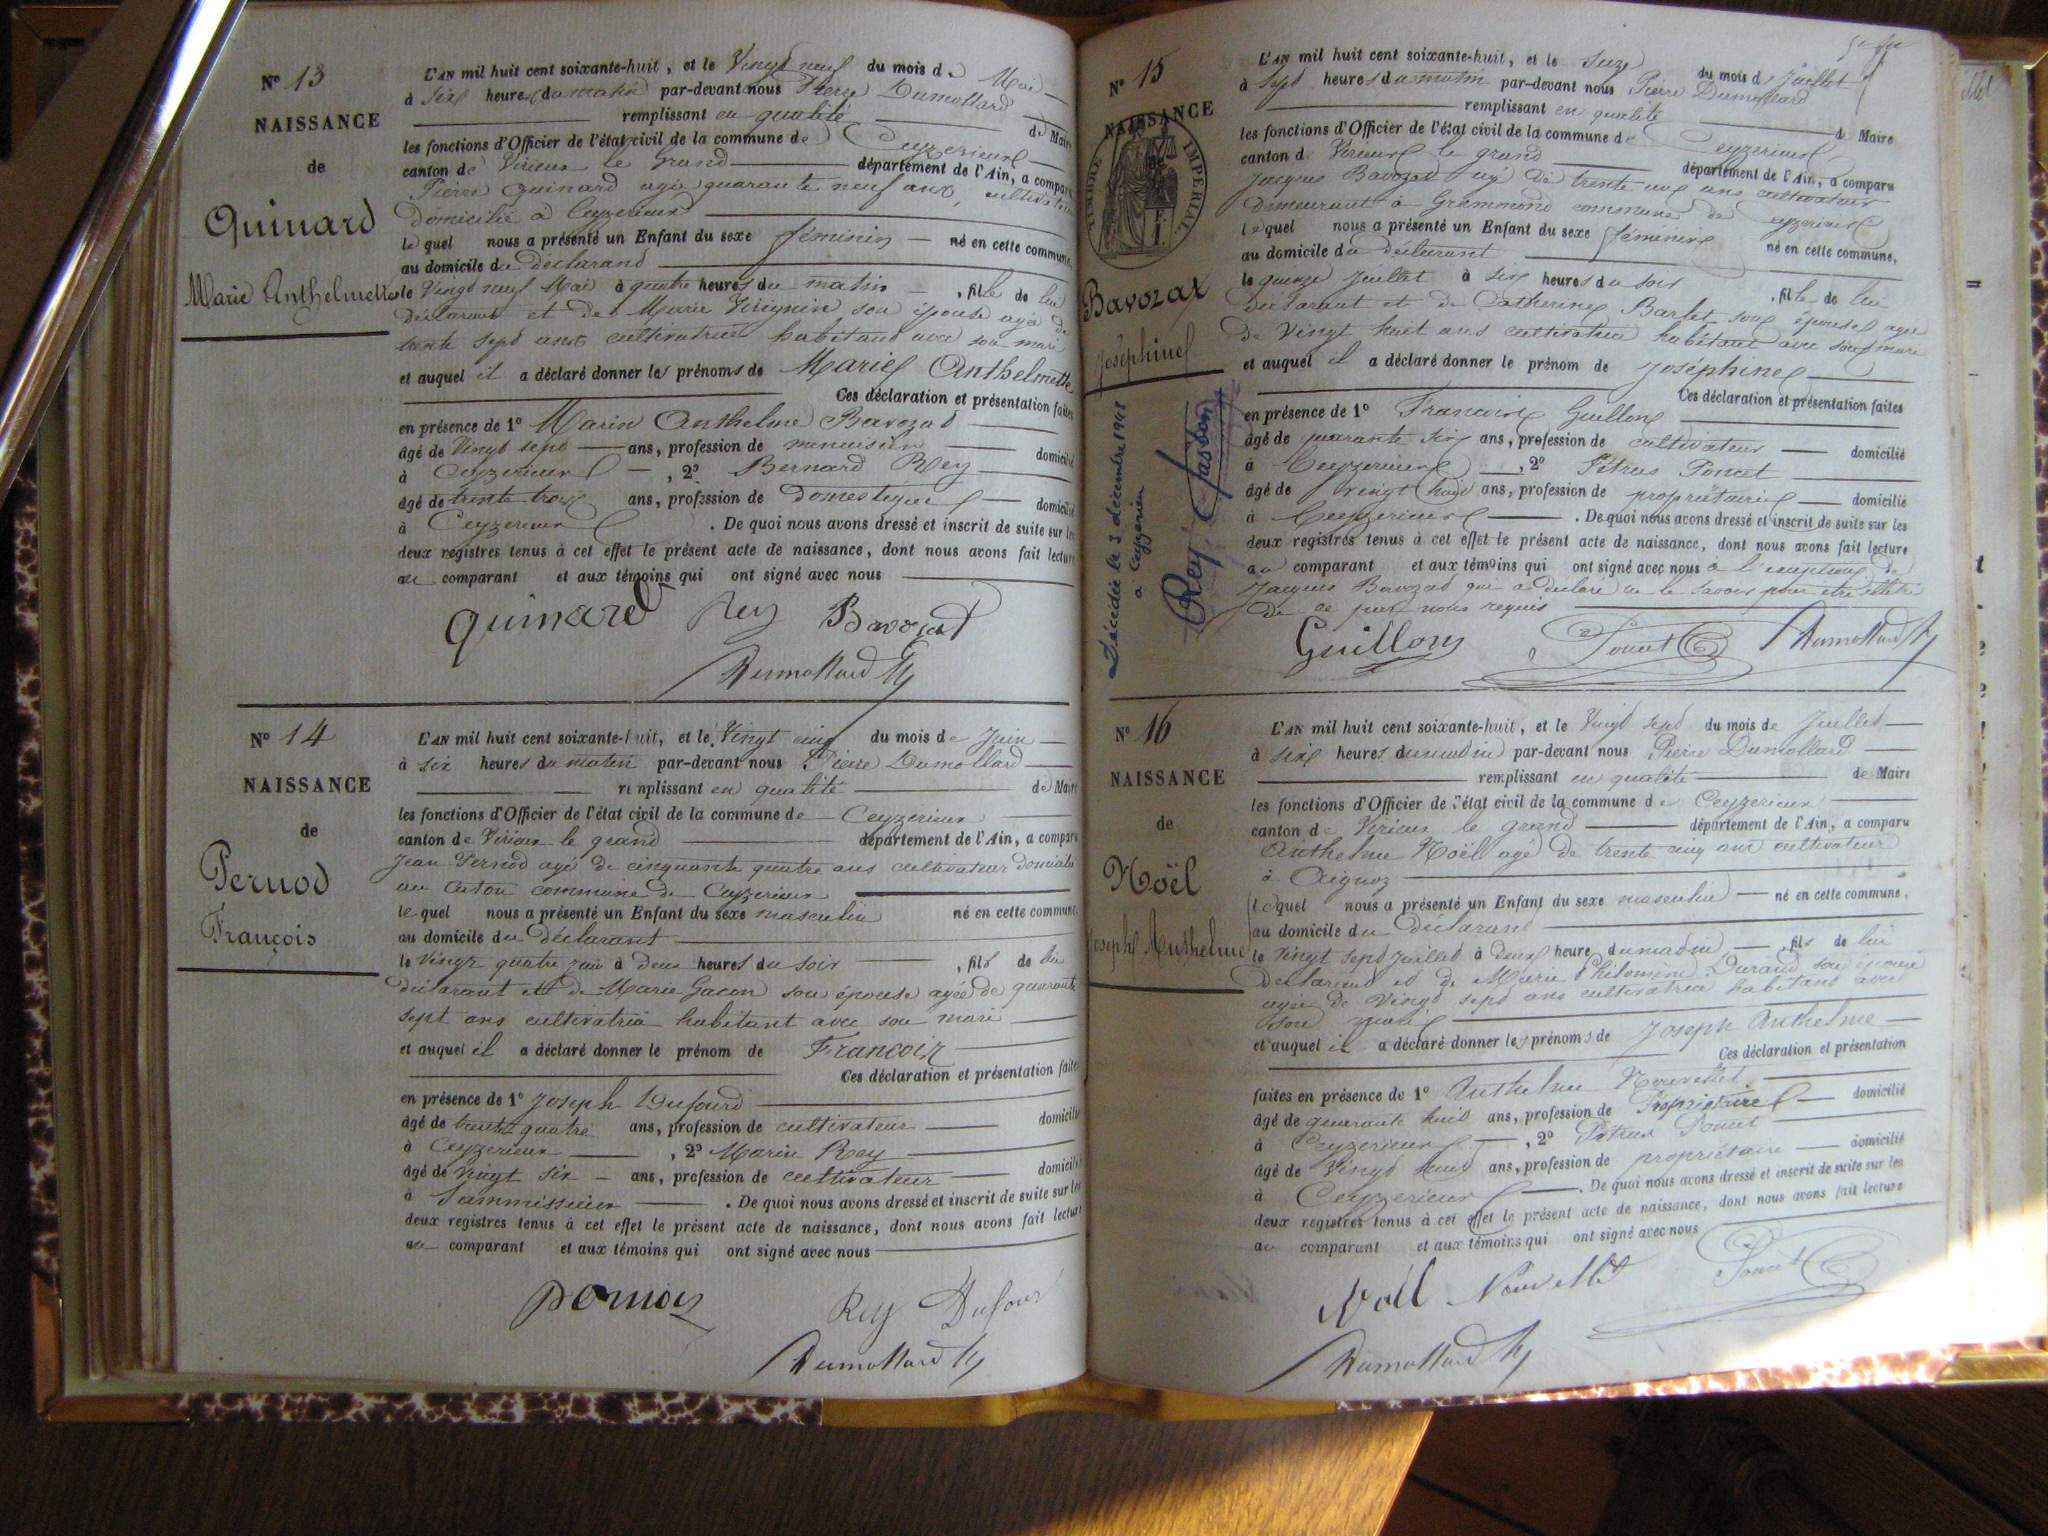 N° 13
NAISSANCE
de
Quinard
Marie Anthelmette
L'AN mil huit cent soixante-huit, et le Vingt neuf du mois de Mai
à six heures du matin par-devant nous Pierre Dumollard
remplissant en qualité de Maire
les fonctions d'Officier de l'état civil de la commune de Ceyzerieux
canton de Virieux le Grand département de l'Ain, a comparu
Pierre Quinard agé quarante neuf ans, cultivateur
domicilié à Ceyzerieux
lequel nous a présenté un Enfant du sexe féminin né en cette commune,
au domicile du déclarand
le Vingt neuf Mai à quatre heures du matin, fille de lui
déclarant et de Marie son épouse agée de
trente sept ans cultivatrice habitand avec son mari
et auquel il a déclaré donner les prénoms de Marie Anthelmette
Ces déclaration et présentation faites
en présence de 1° Marin Anthelme Bavozad
âgé de Vingt sept ans, profession de menuisier domicilié
à Ceyzerieux, 2° Bernard Rey
âgé de trente trois ans, profession de domestique domicilié
à Ceyzerieux. De quoi nous avons dressé et inscrit de suite sur les
deux registres tenus à cet effet le présent acte de naissance, dont nous avons fait lecture
au comparant et aux témoins qui ont signé avec nous
quinard Rey Bavozat
Dumollard
N° 14
NAISSANCE
de
Pernod
François
L'AN mil huit cent soixante-huit, et le Vingt cinq du mois de Juin
à six heures du matin par-devant nous Pierre Dumollard
remplissant en qualité de Maire
les fonctions d'Officier de l'état civil de la commune de Ceyzerieux
canton de Virieux le grand département de l'Ain, a comparu
Jean Pernod agé de cinquante quatre ans cultivateur domicilié
au commune de Ceyzerieux
lequel nous a présenté un Enfant du sexe masculin né en cette commune,
au domicile du déclarant
le Vingt quatre juin à deux heures du soir, fils de lui
déclarant et de Marie Gacon son épouse agée de quarante
sept ans cultivatrice habitant avec son mari
et auquel il a déclaré donner le prénom de François
Ces déclaration et présentation faites
en présence de 1° Joseph Dufourd
âgé de trente quatre ans, profession de cultivateur domicilié
à Ceyzerieux, 2° Marin Rey
âgé de Vingt six ans, profession de cultivateur domicilié
à. De quoi nous avons dressé et inscrit de suite sur les
deux registres tenus à cet effet le présent acte de naissance, dont nous avons fait lecture
au comparant et aux témoins qui ont signé avec nous
Rey Dufour
Dumollard
N° 15
NAISSANCE
TIMBRE IMPERIAL
Bavozat
Joséphine
Décédée le 3 décembre 1948
à Ceyzérieu
Rey
L'AN mil huit cent soixante-huit, et le seize du mois de Juillet
à sept heures du matin par-devant nous Pierre Dumollard
remplissant en qualité de Maire
les fonctions d'Officier de l'état civil de la commune de Ceyzerieux
canton de Virieux le grand département de l'Ain, a comparu
Jacques Bavozad agé de trente ans cultivateur
demeurant à Grammond commune de Ceyzerieux
lequel nous a présenté un Enfant du sexe féminin né en cette commune,
au domicile du déclarant
le quinze Juillet à six heures du soir, fille de lui
déclarant et de Catherine Barlet son épouse agée
de Vingt huit ans cultivatrice habitant avec son mari
et auquel il a déclaré donner le prénom de Joséphine
Ces déclaration et présentation faites
en présence de 1° Francois Guillon
âgé de quarante six ans, profession de cultivateur domicilié
à Ceyzerieux, 2° Pétrus Poncet
âgé de vingt huit ans, profession de propriétaire domicilié
à Ceyzerieux. De quoi nous avons dressé et inscrit de suite sur les
deux registres tenus à cet effet le présent acte de naissance, dont nous avons fait lecture
au comparant et aux témoins qui ont signé avec nous à l'exception de
Jacques Bavozad qui a déclaré ne le savoir pour être illétré
de ce par nous requis
Guillon Poncet Dumollard
N° 16
NAISSANCE
de
Noël
Joseph Anthelme
L'AN mil huit cent soixante-huit, et le Vingt sept du mois de Juillet
à six heures du matin par-devant nous Pierre Dumollard
remplissant en qualité de Maire
les fonctions d'Officier de l'état civil de la commune de Ceyzerieux
canton de Virieux le grand département de l'Ain, a comparu
Anthelme Noël agé de trente cinq ans cultivateur
à Aignoz
lequel nous a présenté un Enfant du sexe masculin né en cette commune,
au domicile du déclarand
le Vingt sept Juillet à deux heures du matin, fils de lui
déclarand et de Marie Philomène Durand son épouse
agée de Vingt sept ans cultivatrice habitand avec
son mari
et auquel il a déclaré donner les prénoms de Joseph Anthelme
Ces déclaration et présentation
faites en présence de 1° Anthelme Nouvellet
âgé de quarante huit ans, profession de Propriétaire domicilié
à Ceyzerieux, 2° Pétrus Poncet
âgé de Vingt huit ans, profession de propriétaire domicilié
à Ceyzerieux. De quoi nous avons dressé et inscrit de suite sur les
deux registres tenus à cet effet le présent acte de naissance, dont nous avons fait lecture
au comparant et aux témoins qui ont signé avec nous
Noël Nouvellet Poncet
Dumollard